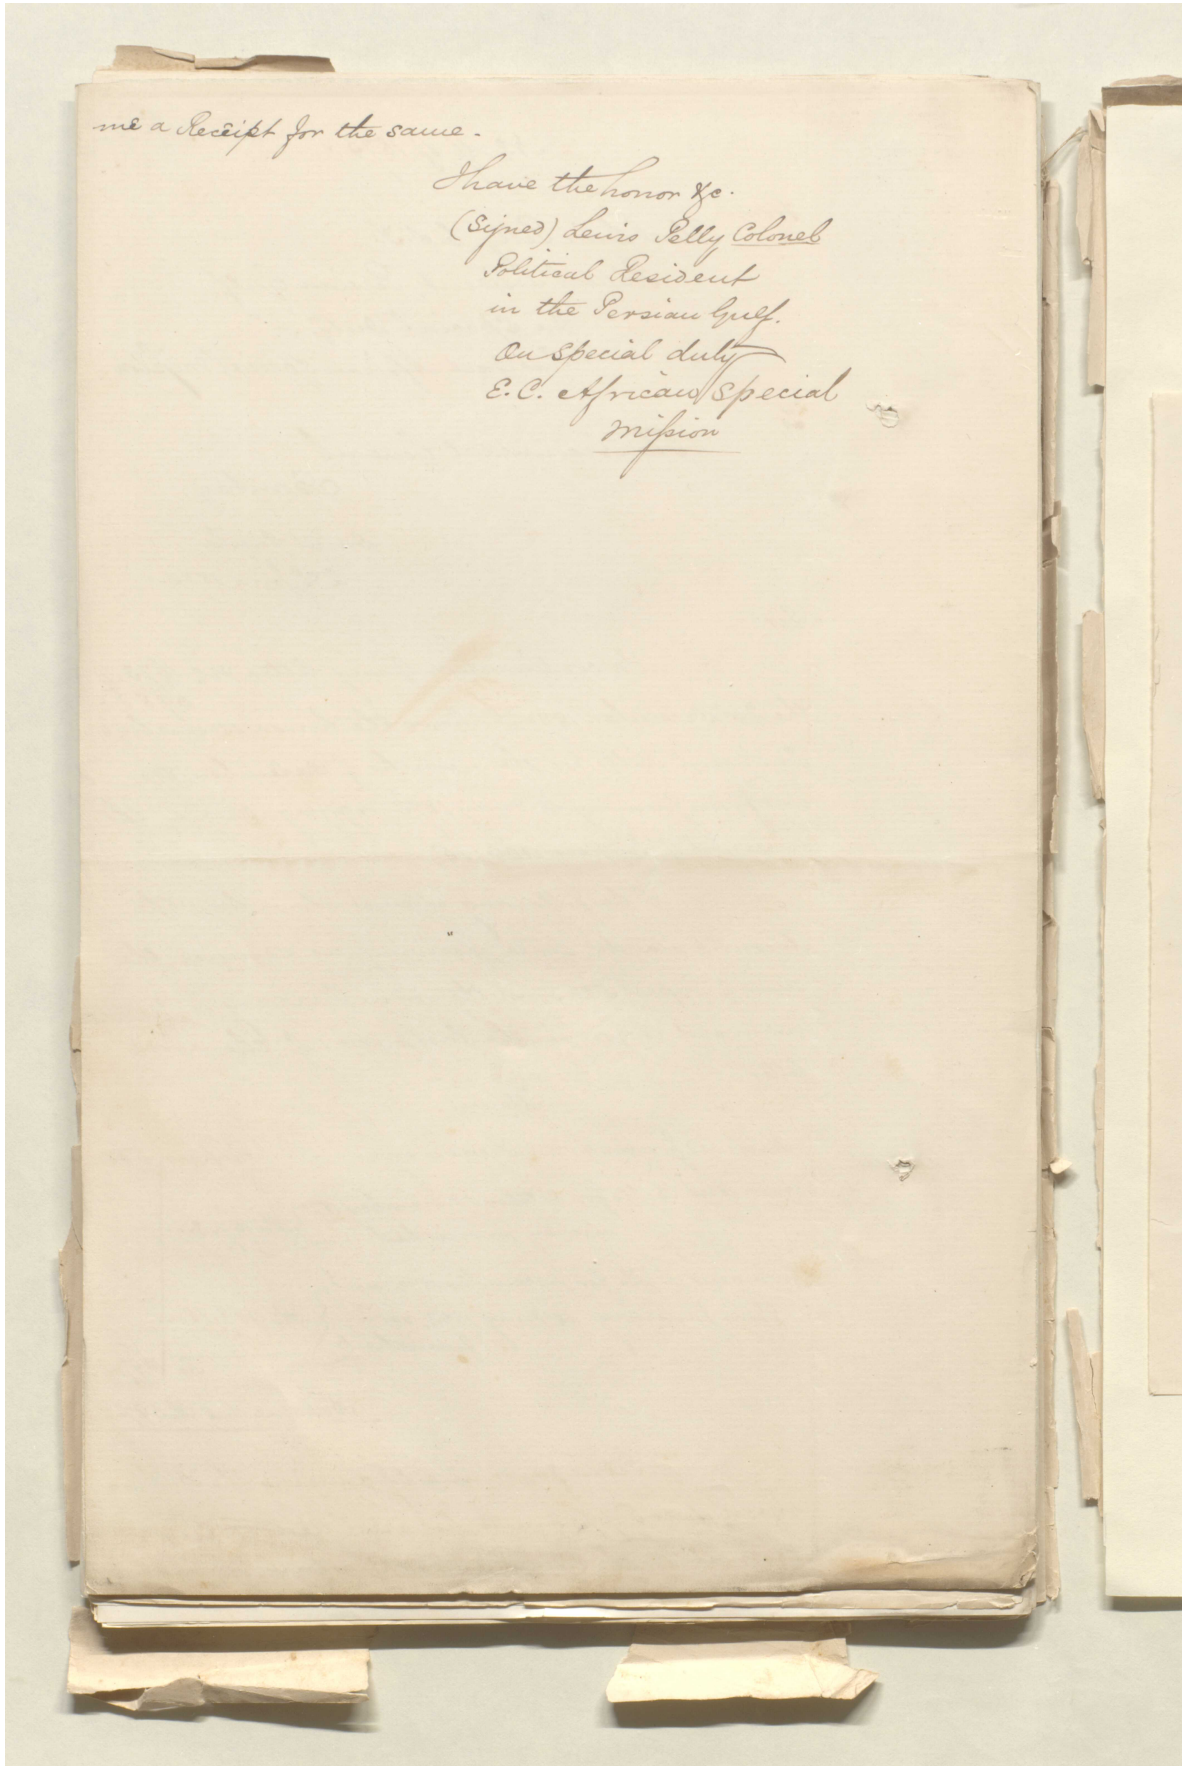 me a Receipt for the same.
I have the honor &c.
(Signed) Lewis Pelly Colonel
Political Resident
in the Persian Gulf.
On special duty
E. C. African Special
Mission